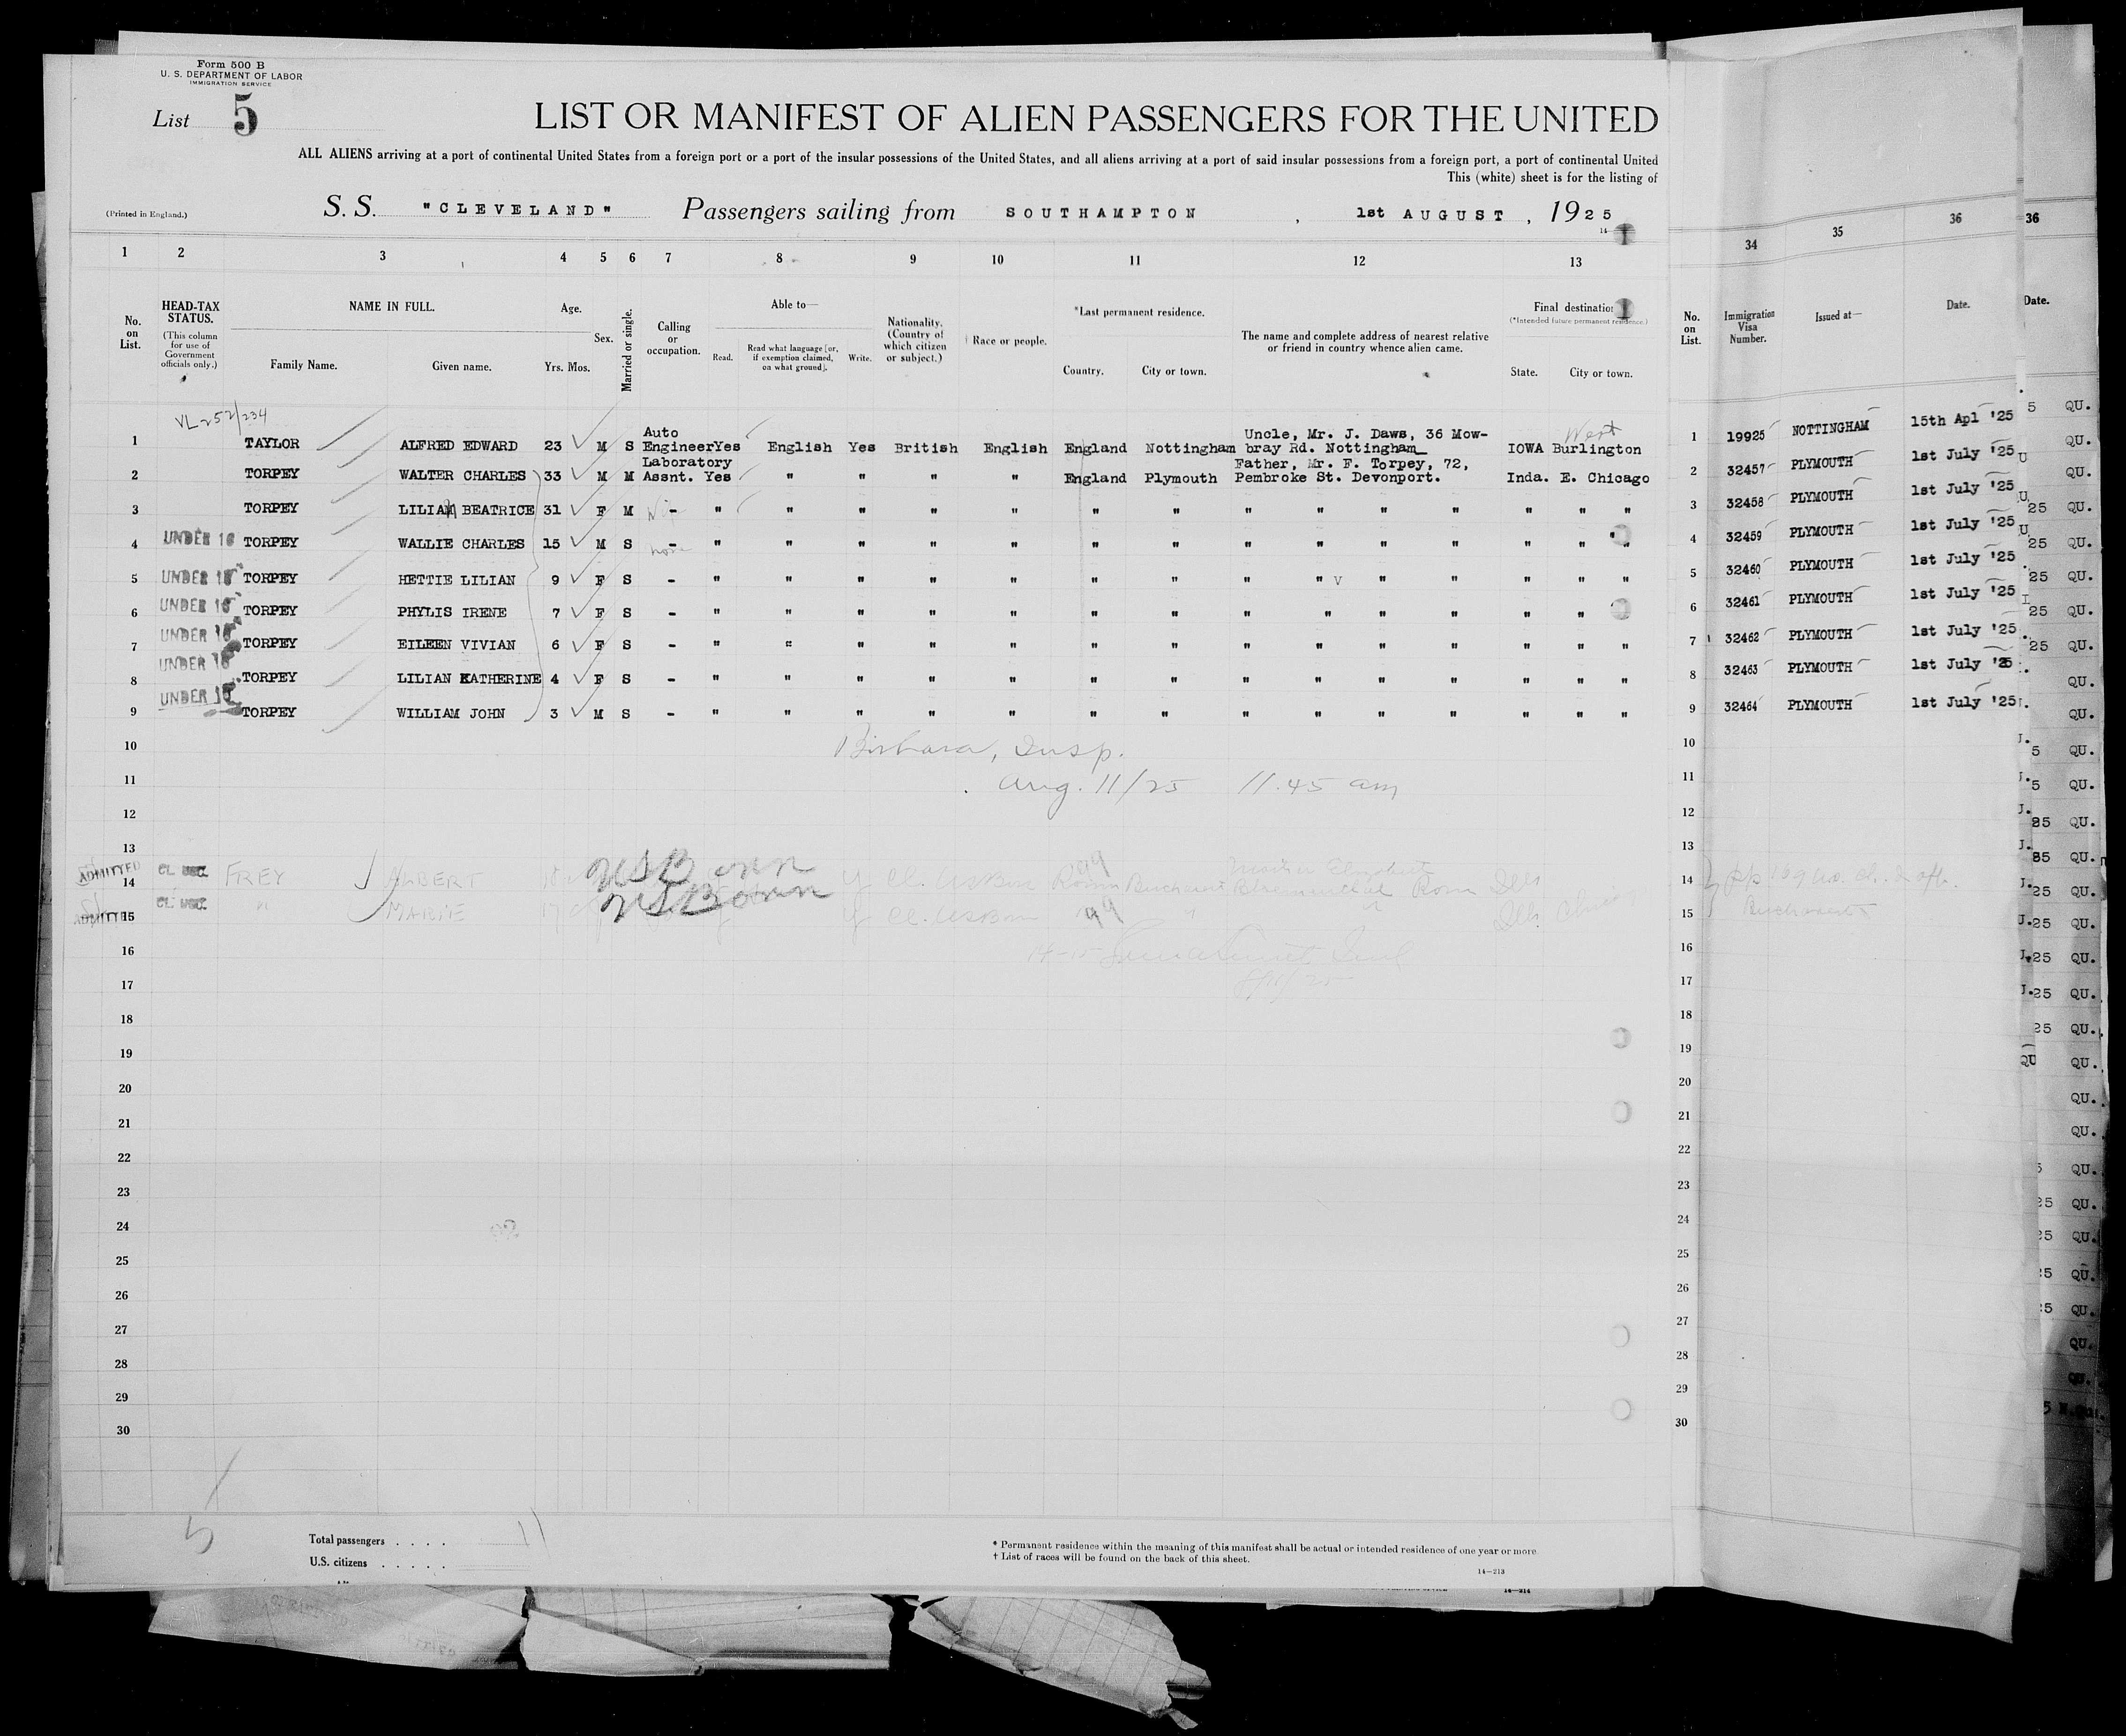 Form 500 B
U. S. DEPARTMENT OF LABOR
IMMIGRATION SERVICE
List 5
LIST OR MANIFEST OF ALIEN PASSENGERS FOR THE UNITED
ALL ALIENS arriving at a port of continental United States from a foreign port or a port of the insular possessions of the United States, and all aliens arriving at a port of said insular possessions from a foreign port, a port of continental United
This (white) sheet is for the listing of
(Printed in England.)
S. S. "CLEVELAND" Passengers sailing from SOUTHAMPTON , 1st AUGUST , 1925
1 2 3 4 5 6 7 8 9 10 11 12 13 34 35 36 36
No. on List.
HEAD-TAX STATUS.
(This column for use of Government officials only.)
NAME IN FULL.
Family Name. Given name.
Age.
Yrs. Mos.
Sex.
Married or single.
Calling or occupation.
Able to—
Read. Read what language [or, if exemption claimed, on what ground]. Write.
Nationality. (Country of which citizen or subject.)
Race or people.
*Last permanent residence.
Country. City or town.
The name and complete address of nearest relative or friend in country whence alien came.
Final destination
(*Intended future permanent residence.)
State. City or town.
No. on List.
Immigration Visa Number.
Issued at—
Date.
Date.
VL 252/234
1 TAYLOR ALFRED EDWARD 23 M S Auto Engineer Yes English Yes British English England Nottingham Uncle, Mr. J. Daws, 36 Mow-bray Rd. Nottingham IOWA West Burlington 1 19925 NOTTINGHAM 15th Apl '25
2 TORPEY WALTER CHARLES 33 M M Laboratory Assnt. Yes " " " " England Plymouth Father, Mr. F. Torpey, 72, Pembroke St. Devonport. Inda. E. Chicago 2 32457 PLYMOUTH 1st July '25
3 TORPEY LILIAN BEATRICE 31 F M - " " " " " " " " " " " " " " 3 32458 PLYMOUTH 1st July '25
4 UNDER 16 TORPEY WALLIE CHARLES 15 M S - none " " " " " " " " " " " " " " 4 32459 PLYMOUTH 1st July '25
5 UNDER 16 TORPEY HETTIE LILIAN 9 F S - " " " " " " " " " " " " " " 5 32460 PLYMOUTH 1st July '25
6 UNDER 16 TORPEY PHYLIS IRENE 7 F S - " " " " " " " " " " " " " " 6 32461 PLYMOUTH 1st July '25
7 UNDER 16 TORPEY EILEEN VIVIAN 6 F S - " " " " " " " " " " " " " " 7 32462 PLYMOUTH 1st July '25
8 UNDER 16 TORPEY LILIAN KATHERINE 4 F S - " " " " " " " " " " " " " " 8 32463 PLYMOUTH 1st July '25
9 UNDER 16 TORPEY WILLIAM JOHN 3 M S - " " " " " " " " " " " " " " 9 32464 PLYMOUTH 1st July '25
10 Insp. 10
11 Aug. 11/25 11.45 am 11
12 12
13 13
14 ADMITTED FREY ALBERT 18 US Born 14
15 ADMITTED " MARIE 17 US Born 15
16 16
17 17
18 18
19 19
20 20
21 21
22 22
23 23
24 24
25 25
26 26
27 27
28 28
29 29
30 30
5
Total passengers . . . . 11
U.S. citizens . . . . .
* Permanent residence within the meaning of this manifest shall be actual or intended residence of one year or more
† List of races will be found on the back of this sheet.
14—213
14—214